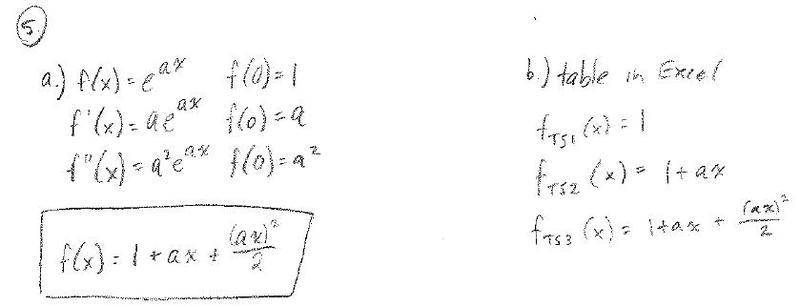 5.
a.) f(x) = e^{ax} f(0) = 1
f'(x) = ae^{ax} f(0) = a
f"(x) = a²e^{ax} f(0) = a²
f(x) = 1 + ax + (ax)²/2
b.) table in Excel
f_{TS1}(x) = 1
f_{TS2}(x) = 1 + ax
f_{TS3}(x) = 1 + ax + (ax)²/2